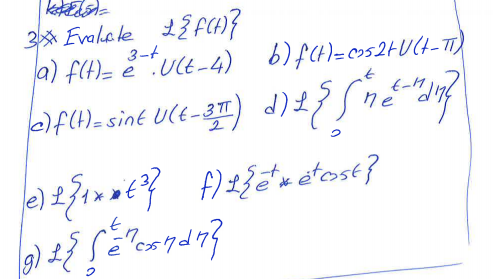 3* Evaluate ℒ{f(t)}
a) f(t)= e^{3-t}.U(t-4) b) f(t)=cos2t U(t-π)
c) f(t)=sint U(t-3π/2) d) ℒ{∫_0^t η e^{t-η}dη}
e) ℒ{1*t^3} f) ℒ{e^{-t} * e^t cost}
g) ℒ{∫_0^t e^{-η} cosη dη}